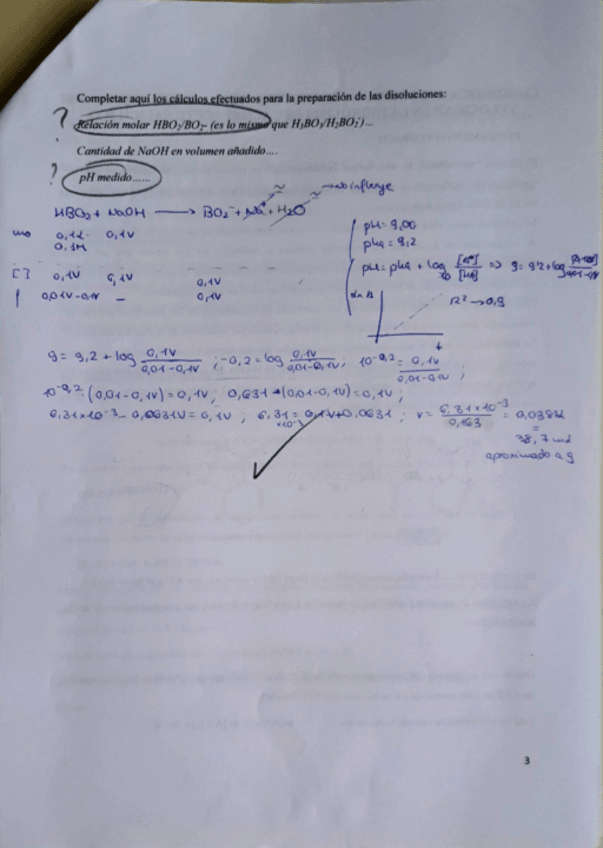 Completar aquí los cálculos efectuados para la preparación de las disoluciones:
? Relación molar HBO₂/BO₂- (es lo mismo que H₃BO₃/H₂BO₃⁻)...
Cantidad de NaOH en volumen añadido....
? pH medido......
≈ ≈ → no influye
HBO₂ + NaOH ⟶ BO₂⁻ + Na⁺ + H₂O
0,1L 0,1V
0,1M
[] 0,1V 0,1V 0,1V
0,01V-0,1V — 0,1V
pH = 9,00
pka = 9,2
pH = pka + log
R² → 0,9
t
9 = 9,2 + log 0,1V / 0,01-0,1V ; -0,2 = log 0,1V / 0,01-0,1V ; 10^-0,2 = 0,1V / 0,01-0,1V ;
10^-0,2 · (0,01-0,1V) = 0,1V ; 0,631 · (0,01-0,1V) = 0,1V ;
6,31×10⁻³ - 0,0631V = 0,1V ; 6,31×10⁻³ = 0,1V + 0,0631 ; V = 6,31×10⁻³ / 0,163 = 0,0387
=
38,7 ml
aproximado a 9
3